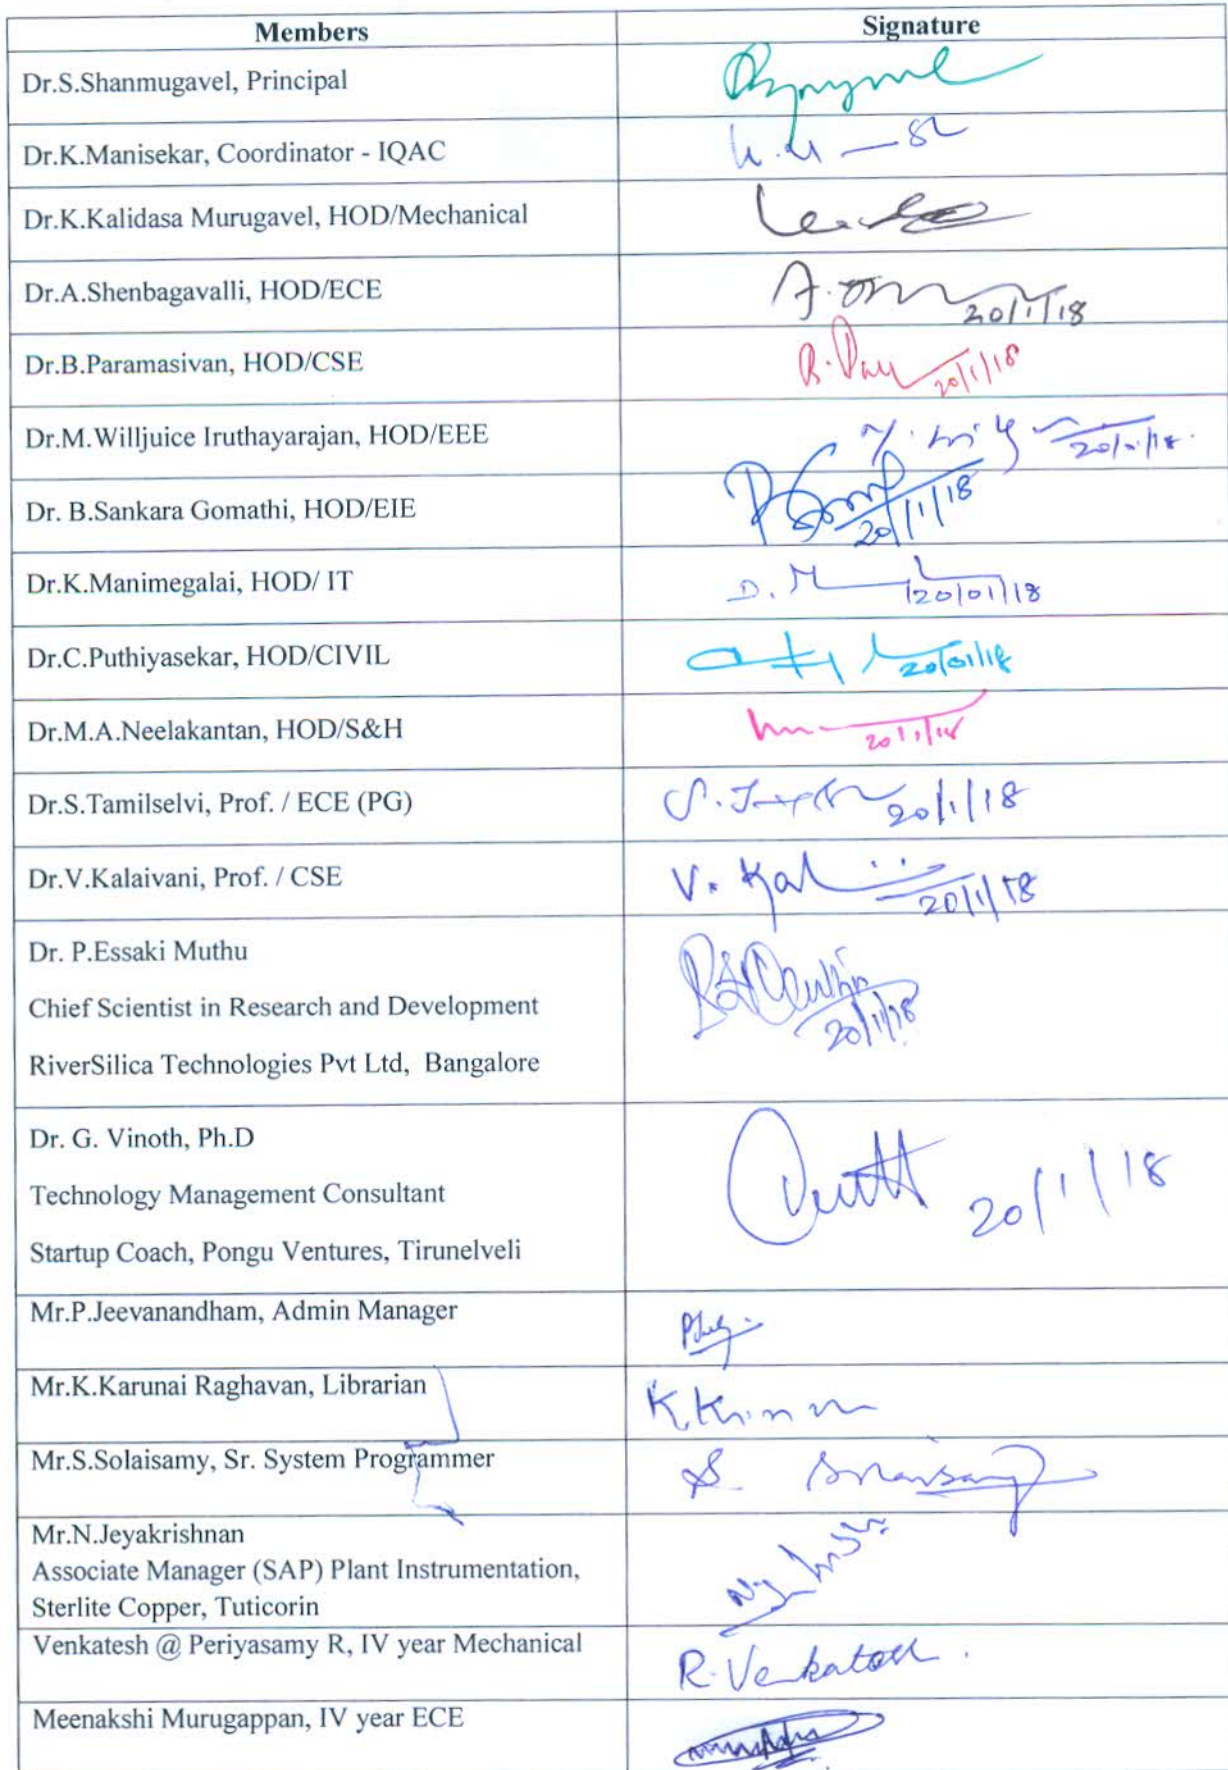 Members Signature
Dr.S.Shanmugavel, Principal
Dr.K.Manisekar, Coordinator - IQAC
Dr.K.Kalidasa Murugavel, HOD/Mechanical
Dr.A.Shenbagavalli, HOD/ECE A. 20/1/18
Dr.B.Paramasivan, HOD/CSE 20/1/18
Dr.M.Willjuice Iruthayarajan, HOD/EEE
Dr. B.Sankara Gomathi, HOD/EIE 20/1/18
Dr.K.Manimegalai, HOD/ IT D. 20/01/18
Dr.C.Puthiyasekar, HOD/CIVIL 20/01/18
Dr.M.A.Neelakantan, HOD/S&H 20/1/18
Dr.S.Tamilselvi, Prof. / ECE (PG) S. 20/1/18
Dr.V.Kalaivani, Prof. / CSE V. Kal 20/1/18
Dr. P.Essaki Muthu
Chief Scientist in Research and Development
20/1/18
RiverSilica Technologies Pvt Ltd, Bangalore
Dr. G. Vinoth, Ph.D
Technology Management Consultant 20/1/18
Startup Coach, Pongu Ventures, Tirunelveli
Mr.P.Jeevanandham, Admin Manager
Mr.K.Karunai Raghavan, Librarian
Mr.S.Solaisamy, Sr. System Programmer S.
Mr.N.Jeyakrishnan
Associate Manager (SAP) Plant Instrumentation,
Sterlite Copper, Tuticorin
Venkatesh @ Periyasamy R, IV year Mechanical R. Venkatesh.
Meenakshi Murugappan, IV year ECE